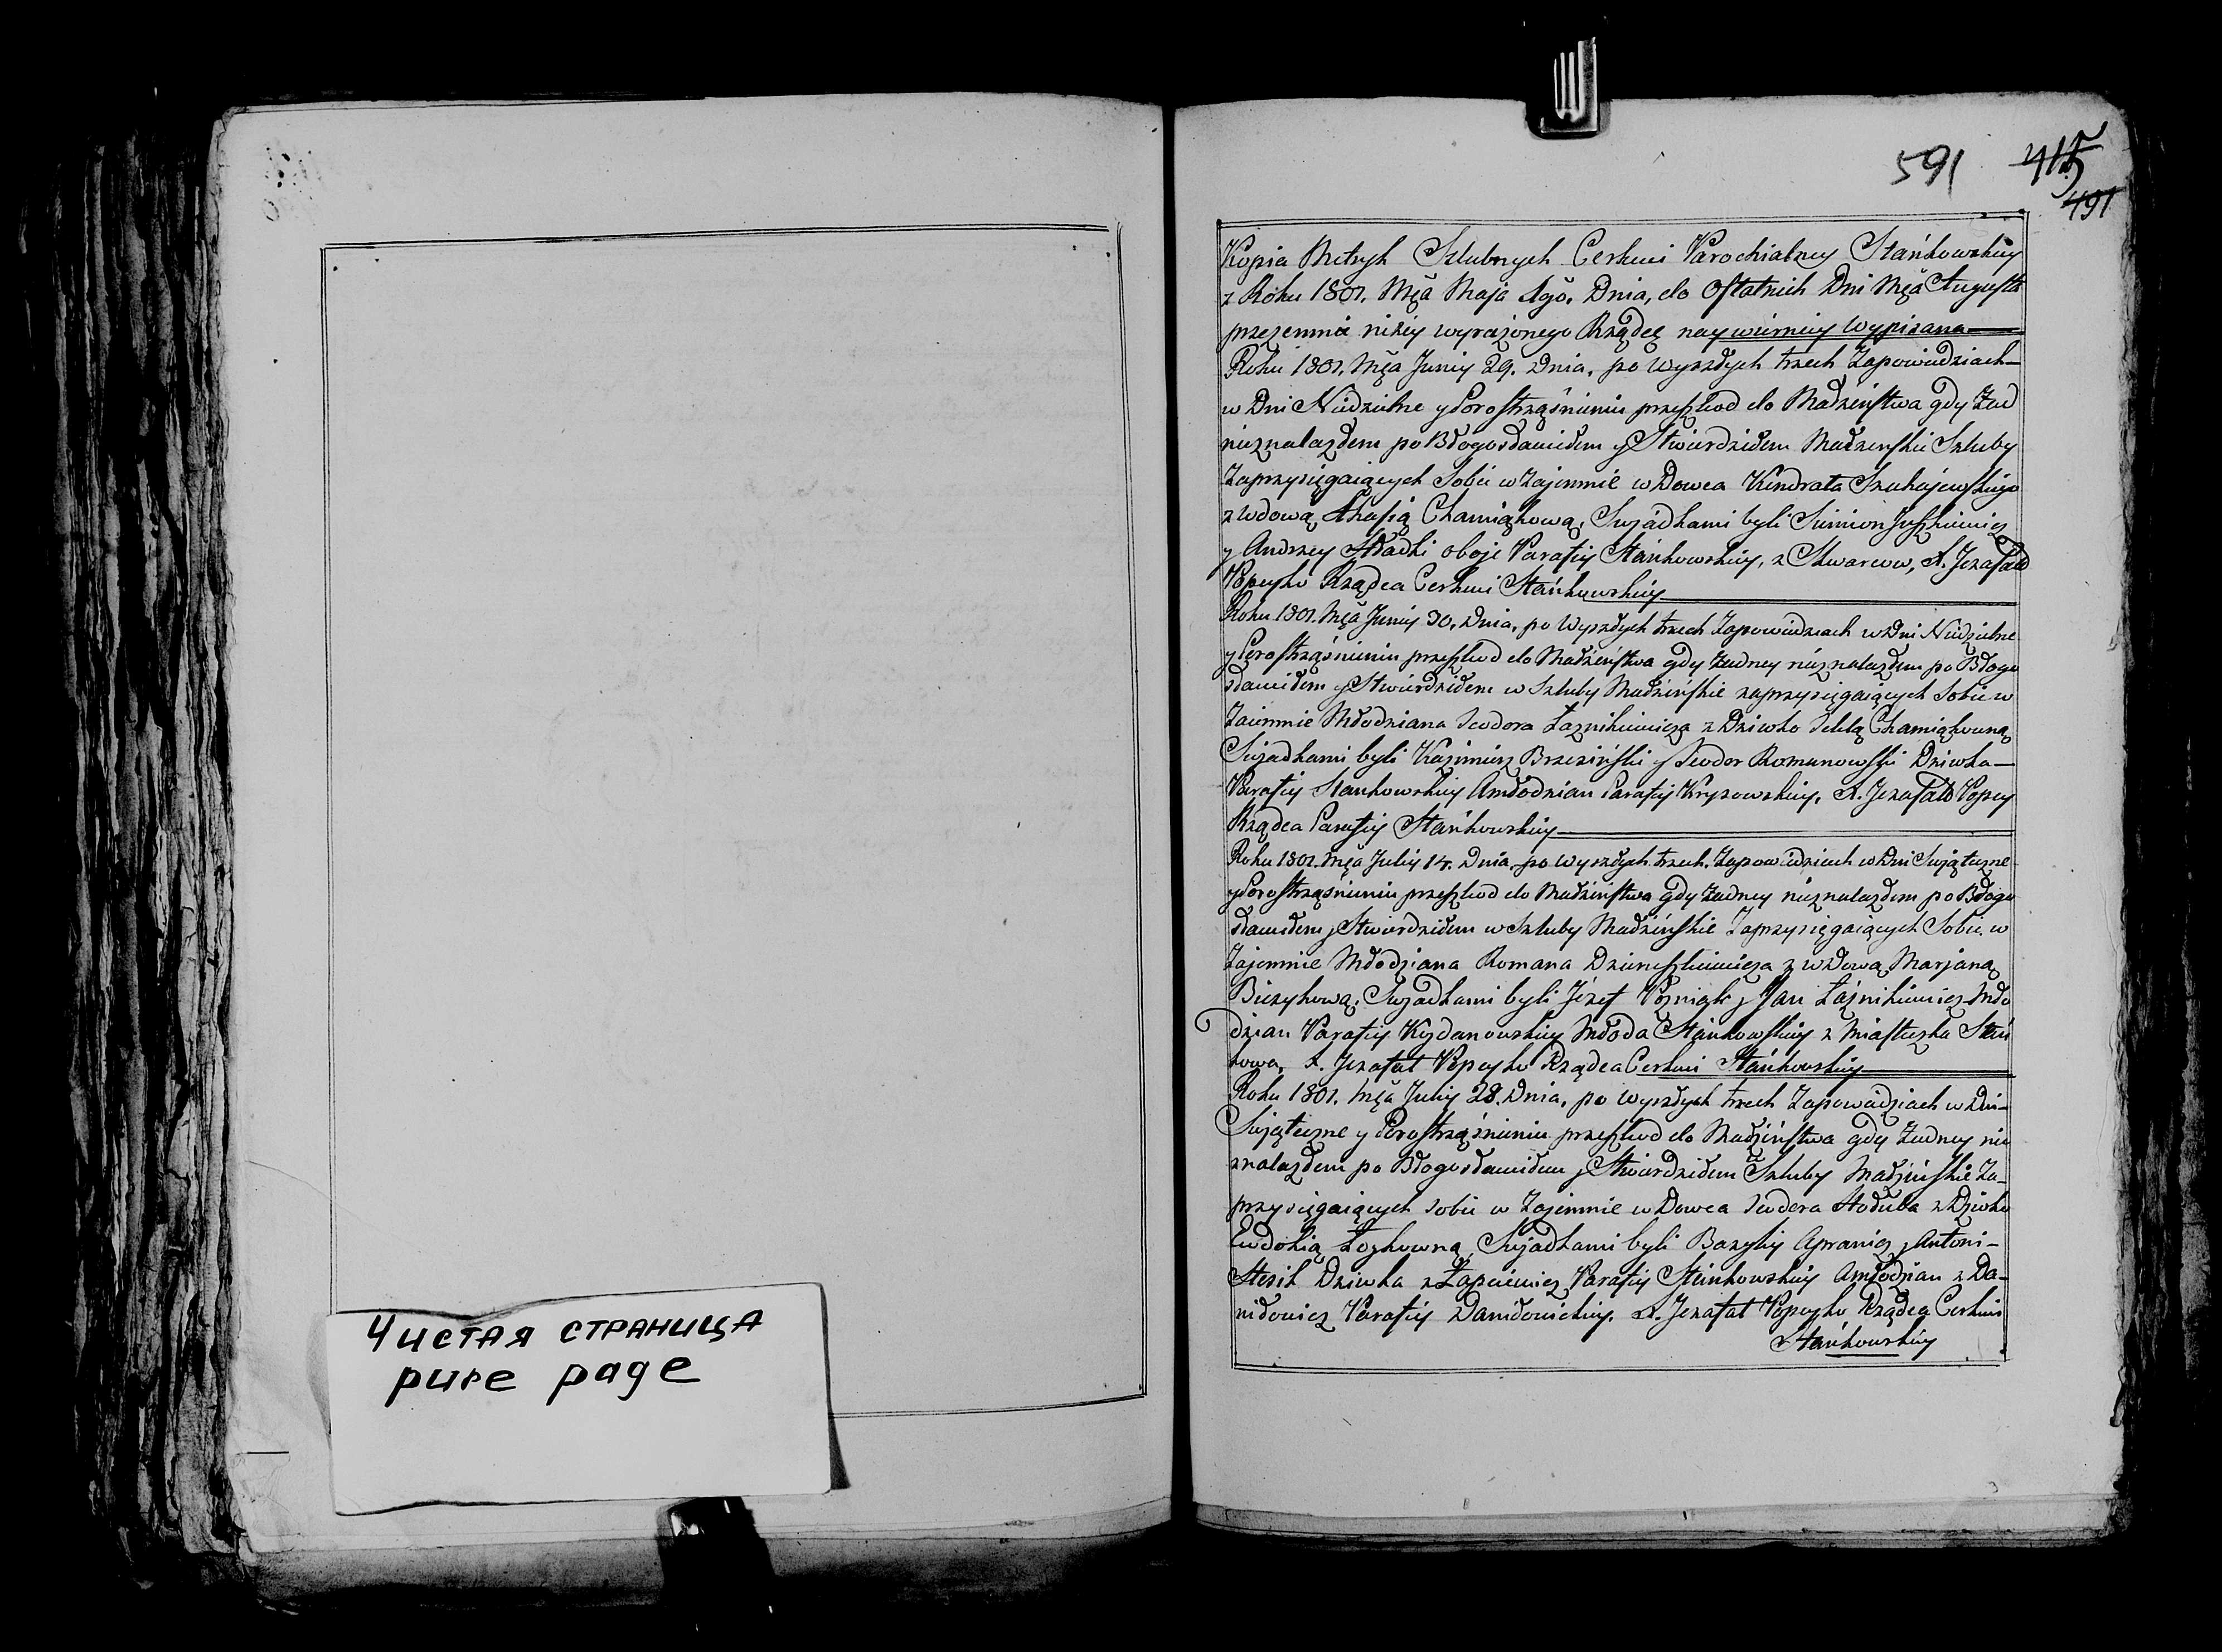 Чистая страница
pure page
591 415
491
Kopia Metryk Szlubnych Cerkwi Parochialney Stańkowskiey
z Roku 1801. Mca Maja 1go. Dnia, do Ostatnich Dni Mca Augusta
przezemnie niżey wyrażonego Rządcę naywierniey wypisana
Roku 1801. Mca Juniy 29. Dnia, po wyszłych trzech Zapowiedziach
w Dni Niedzielne y Porostrząśnieniu przeszkod do Małżeństwa gdy Żad
nieznalazłem po Błogosławiłem y Stwierdziłem Małżenskie Szluby
Zaprzysięgaiących Sobie w Zajemnie w Dowca Kindrata
z wdową Chamiąkową, Swjadkami byli Simion
y Andrzey Hładki oboje Parafiy Stańkowskiey, z Skwarcow, X. Jozafatt
Popeyko Rządca Cerkwi Stańkowskiey
Roku 1801. Mca Juniy 30. Dnia, po wyszłych trzech Zapowiedziach w Dni Niedzielne
y Porostrząśnieniu przeszkod do Małżeństwa gdy Żadney nieznalazłem po Błogo
sławiłem y Stwierdziłem w Szluby Małżeńskie zaprzysięgaiących Sobie w
Zaiemnie Młodziana Teodora Łaznikiewicza z Dziwko Teklą Chamiąkowną
Swjadkami byli Kazimierz Brzeziński y Teodor Romanowski Dziwka
Parafiy Stankowskiey Amłodzian Parafiy Kryzowskiey. X. Jozafatt Popey
Rządca Parafiy Stańkowskiey
Roku 1801. Mca Juliy 14. Dnia, po wyszłych trzech Zapowiedziach w Dni Swjąteczne
y Porostrząśnieniu przeszkod do Małżeństwa gdy Żadney nieznalazłem po Błogo
sławiłem y Stwierdziłem w Szluby Małżeńskie Zaprzysięgaiących Sobie w
Zajemnie Młodziana Romana z wdową Marjaną
Swjadkami byli Józef Pozniak y Jan Łaźnikiewicz Mło
dzian Parafiy Kojdanowskiey Młoda Stańkowskiey z Miasteczka Stań
kowa, X. Jozafat Popeyko Rządca Cerkwi Stańkowskiey
Roku 1801. Mca Juliy 28. Dnia, po wyszłych trzech Zapowiedziach w Dni
Swjąteczne y Porostrząśnieniu przeszkod do Małżeństwa gdy Żadney nie
znalazłem po Błogosławiłem y Stwierdziłem Szluby Małżeńskie Za-
przysięgaiących sobie w Zajemnie w Dowca Teodora z Dziwko
Ewdokią Łozkowną, Swjadkami byli Bazyliy y Antoni
Stesik Dziwka z Parafiy Stańkowskiey Amłodzian z Da-
niłowicz Parafiy Daniłowickiey. X. Jozafat Popeyko Rządca Cerkwi
Stańkowskiey